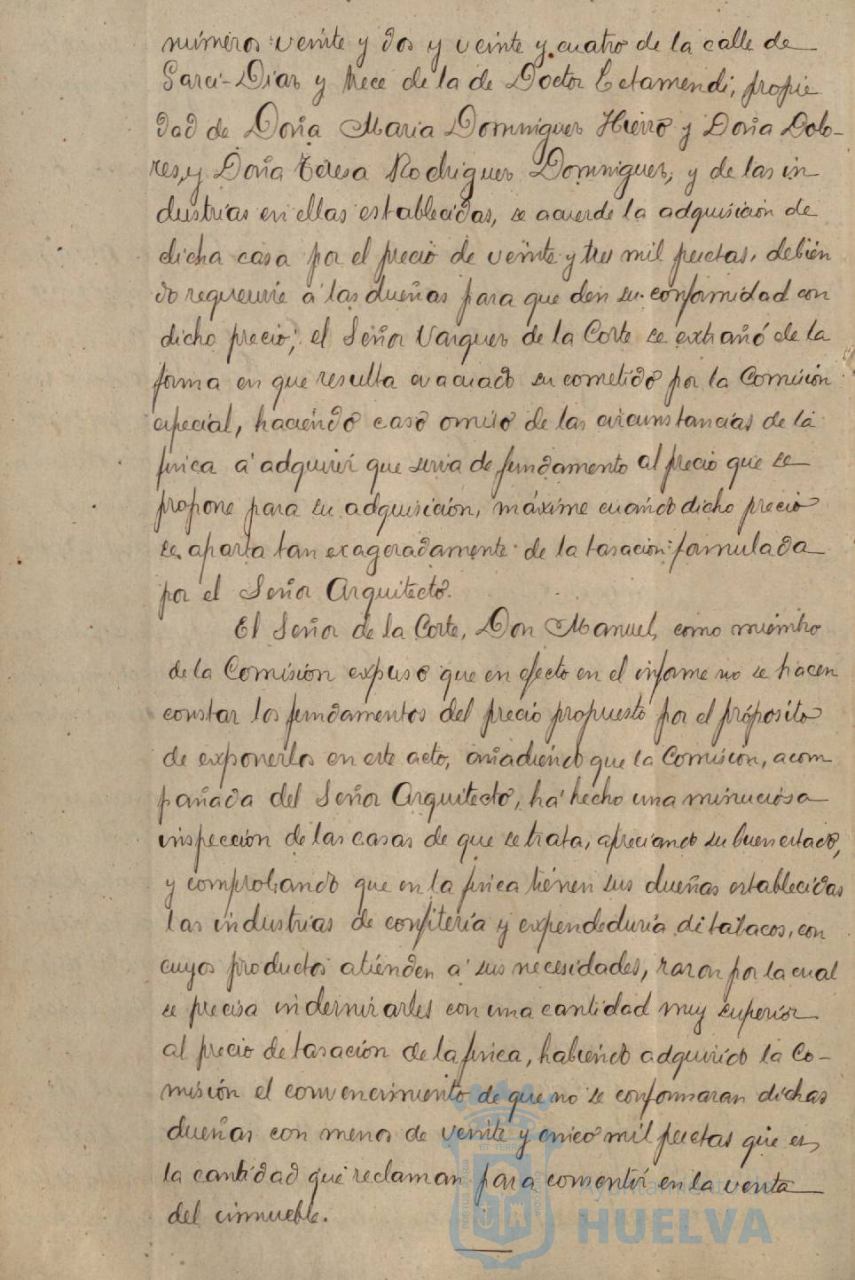 números veinte y dos y veinte y cuatro de la calle de
Garci-Diaz y trece de la de Doctor Letamendi, propie
dad de Doña Maria Dominguez Hierro y Doña Dolo-
res, y Doña Teresa Rodriguez Dominguez, y de las in
dustrias en ellas establecidas, se acuerde la adquisición de
dicha casa por el precio de veinte y tres mil pesetas, debien
do requerirse á las dueñas para que den su conformidad con
dicho precio; el Señor Vazquez de la Corte se extrañó de la
forma en que resulta evacuado su cometido por la Comisión
especial, haciendo caso omiso de las circunstancias de la
finca á adquirir que sirva de fundamento al precio que se
propone para su adquisición, máxime cuando dicho precio
se aparta tan exageradamente de la tasación formulada
por el Señor Arquitecto.
El Señor de la Corte, Don Manuel, como miembro
de la Comisión expuso que en efecto en el informe no se hacen
constar los fundamentos del precio propuesto por el próposito
de exponerlos en este acto, añadiendo que la Comisión, acom
pañada del Señor Arquitecto, há hecho una minuciosa
inspección de las casas de que se trata, apreciando su buen estado,
y comprobando que en la finca tienen sus dueñas establecidas
las industrias de confitería y expendeduría de tabacos, con
cuyos productos atienden á sus necesidades, razon por la cual
se precisa indemnizarles con una cantidad muy superior
al precio de tasación de la finca, habiendo adquirido la Co-
misión el convencimiento de que no se conformaran dichas
dueñas con menos de veinte y cinco mil pesetas que es,
la cantidad que reclaman para consentir en la venta
del inmueble.
Ayuntamiento
HUELVA